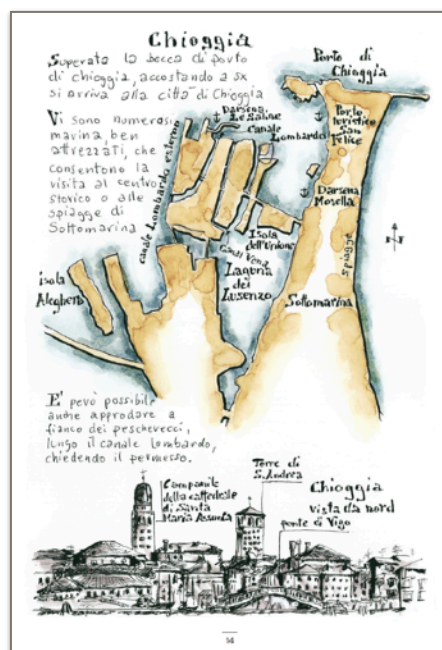 Chioggia
Superata la bocca di porto
di chioggia, accostando a sx
si arriva alla città di Chioggia
Vi sono numerosi
marina, ben
attrezzati, che
consentono la
visita al centro
storico o alle
spiagge di
Sottomarina
Porto di
Chioggia
Darsena
Le Saline
Canale
Lombardo
Porto
turistico
San
Felice
Darsena
Mosella
canale Lombardo esterno
Isola
dell'Unione
Canal Vena
Laguna
dei
Lusenzo
spiagge
Sottomarina
isola
Aleghero
N
E' però possibile
anche approdare a
fianco dei pescherecci,
lungo il canale Lombardo,
chiedendo il permesso.
Campanile
della cattedrale
di Santa
Maria Assunta
Torre di
S. Andrea
Chioggia
vista da nord
ponte di Vigo
14